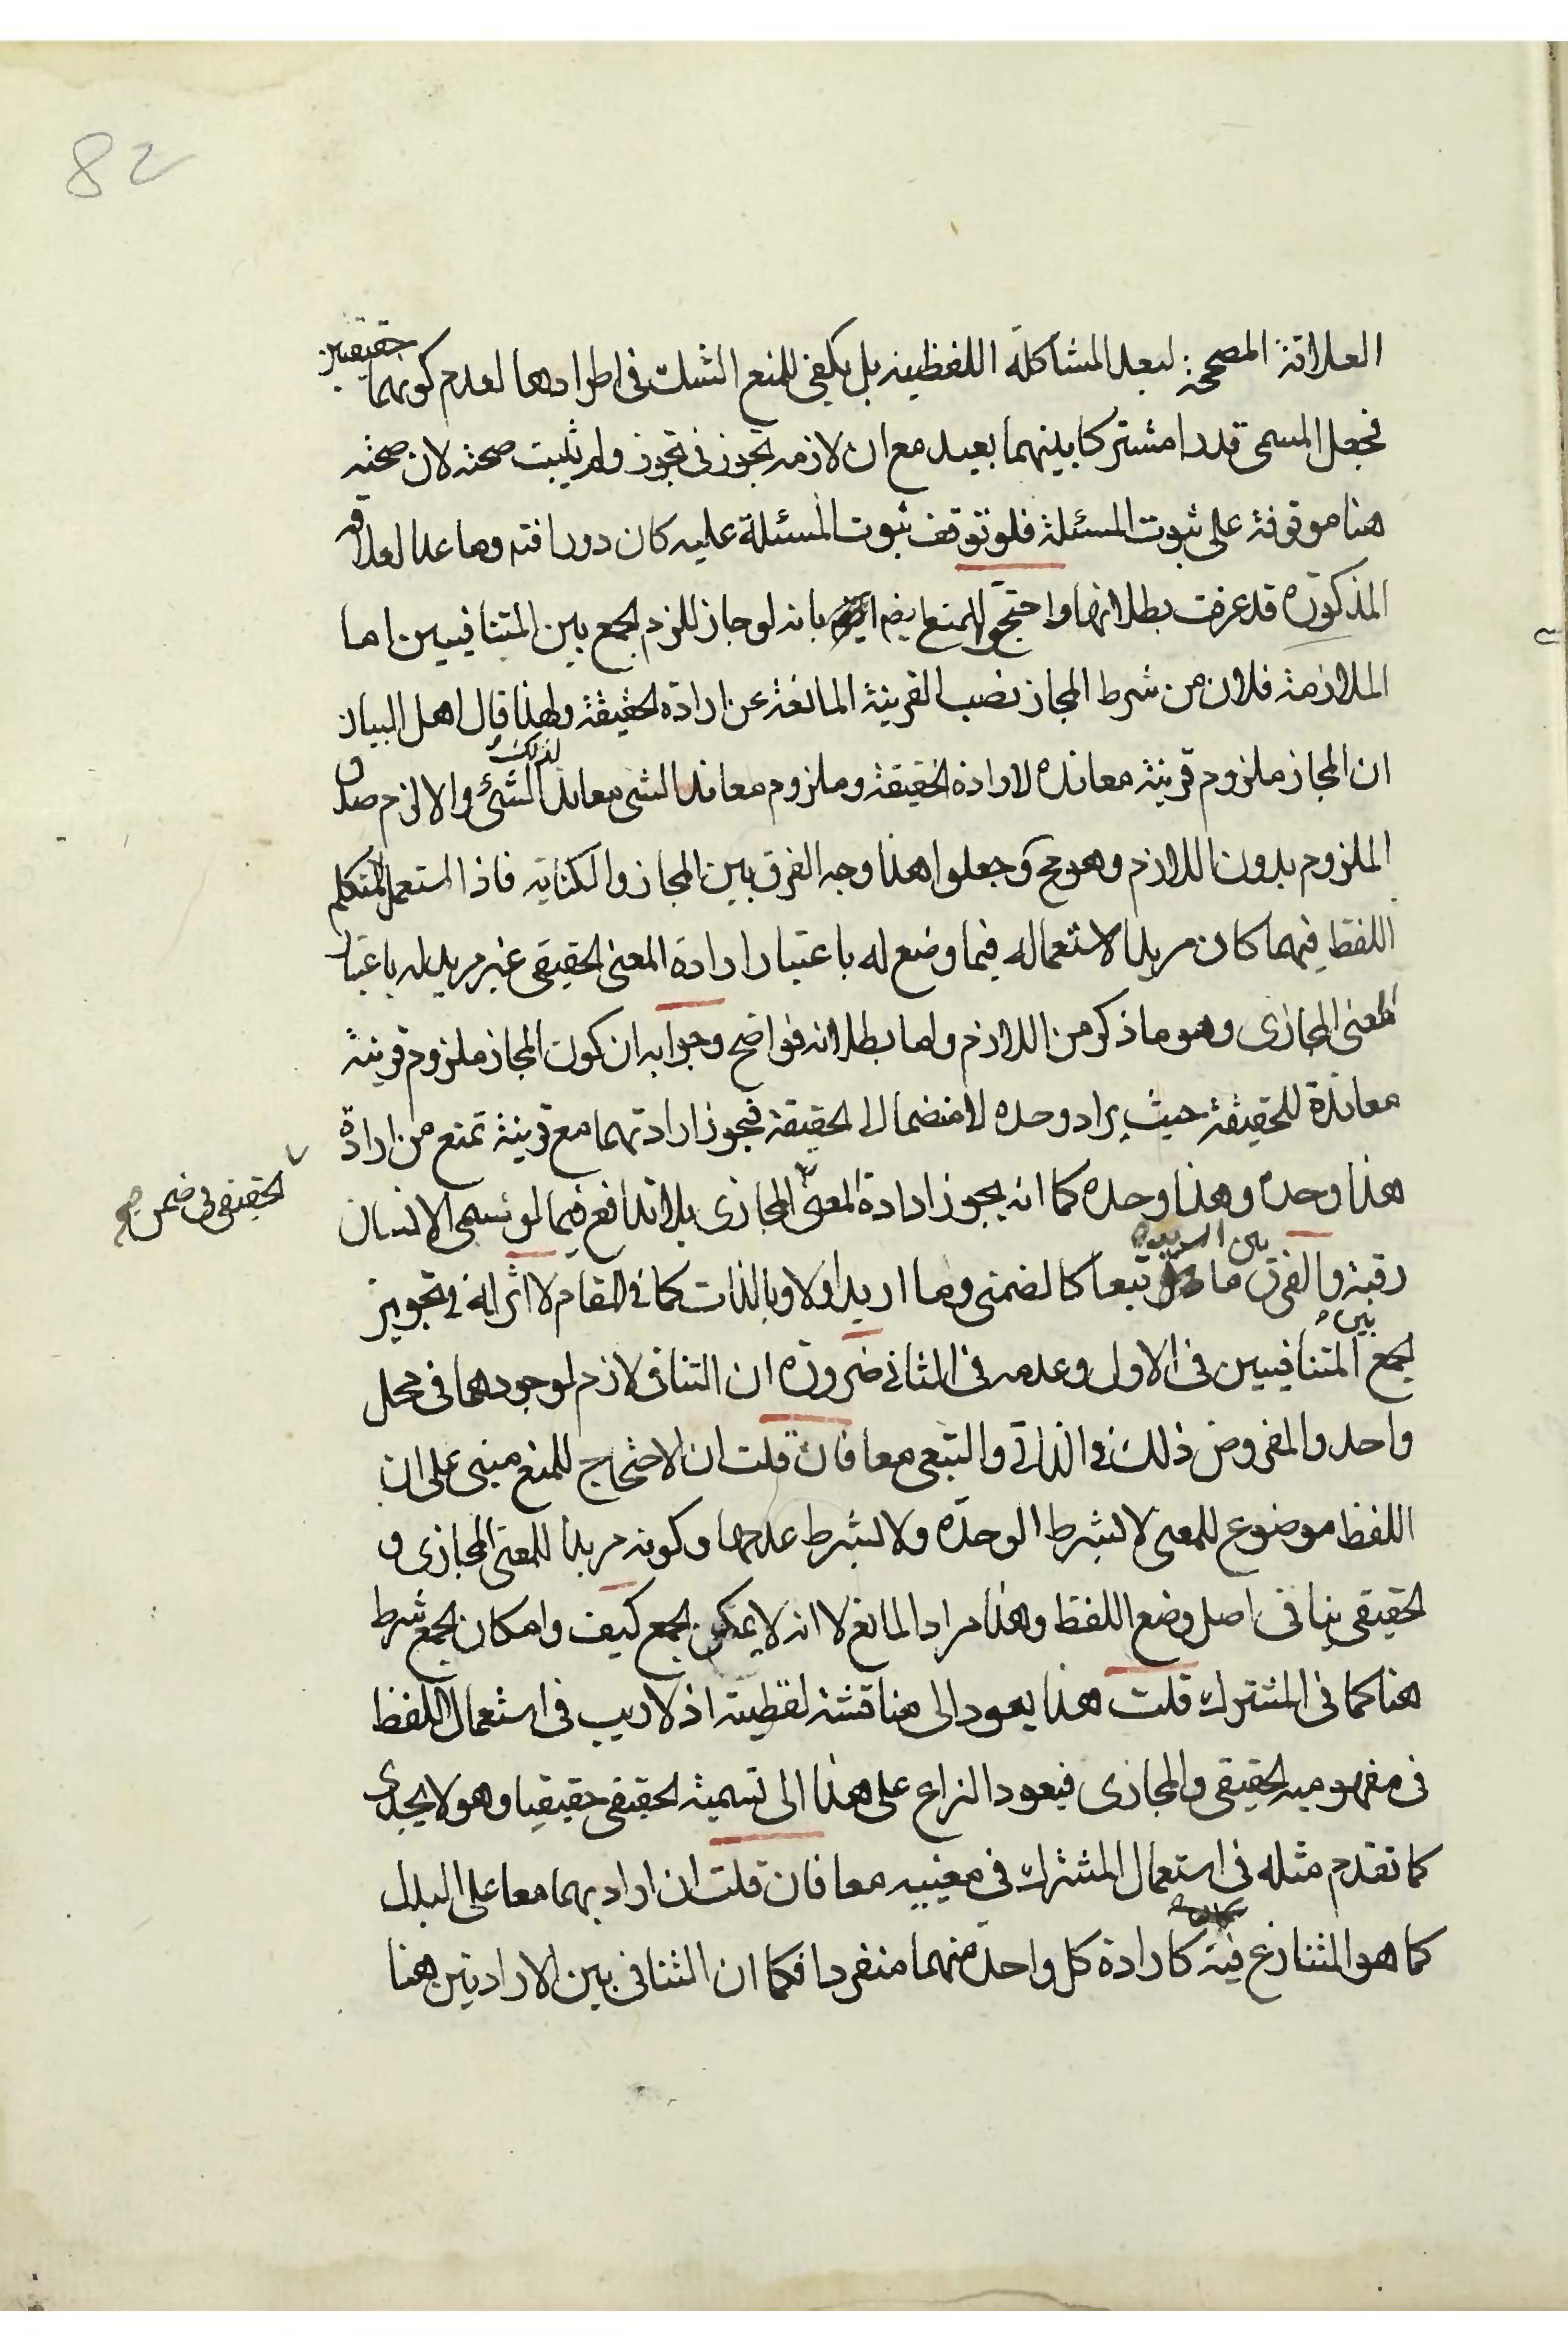 82
العلاقة المصححة لبعد المشاكلة اللفظية بل يكفى للمنع الشك فى اطرادها لعدم كونهما حقيقيين
فجعل المسمى قدرا مشتركا بينهما بعيد مع ان لازمه تجوز فى تجوز ولم يثبت صحته لان صحته
هنا موقوفة على ثبوت المسئلة فلو توقف ثبوت المسئلة عليه كان دورا فتم وما عدا العلاقة
المذكورة قد عرفت بطلانها واحتجوا للمنع بانه لو جاز للزم الجمع بين المتنافيين اما
الملازمة فلان من شرط المجاز نصب القرينة المانعة عن ارادة الحقيقة ولهذا قال اهل البيان
ان المجاز ملزوم قرينة معاندة لارادة الحقيقة وملزوم معاند الشئ معاند لذلك الشئ والا لزم صدق
الملزوم بدون اللازم وهو مح وجعلوا هذا وجه الفرق بين المجاز والكناية فاذا استعمل المتكلم
اللفظ فيهما كان مريدا لاستعماله فيما وضع له باعتبار ارادة المعنى الحقيقى غير مريد له باعتبار
المعنى المجازى وهو ما ذكر من اللازم واما بطلانه فواضح وجوابه ان كون المجاز ملزوم قرينة
معاندة للحقيقة حيث يراد وحده لا منضما الى الحقيقة فيجوز ارادتهما مع قرينة تمنع من ارادة
هذا وحده وهذا وحده كما انه يجوز ارادة المعنى المجازى بلا تدافع فيما لو نسمى الانسان
الحقيقى فى ضمن
رقبة والفرق بين ما تبعا كالضمنى وما اريد اولا وبالذات كما فى المقام لا اثر له فى تجويز
الجمع بين المتنافيين فى الاول وعدمه فى الثانى ضرورة ان التنافى لازم لوجودهما فى محل
واحد والمفروض ذلك فى الذاتى والتبعى معا فان قلت ان الاحتجاج للمنع مبنى على ان
اللفظ موضوع للمعنى لا بشرط الوحدة ولا بشرط عدمها وكونه مريدا للمعنى المجازى و
الحقيقى ينافى اصل وضع اللفظ وهذا مراد المانع لا انه لا يمكن الجمع كيف وامكان الجمع شرط
هنا كما فى المشترك قلت هذا يعود الى مناقشة لفظية اذ لا ريب فى استعمال اللفظ
فى مفهوميه الحقيقى والمجازى فيعود النزاع على هذا الى تسمية الحقيقى حقيقيا وهو لا يجدى
كما تقدم مثله فى استعمال المشترك فى معنييه معا فان قلت ان اراد بهما معا على البدل
كما هو المتنازع فيه كارادة كل واحد منهما منفردا فكما ان التنافى بين الارادتين هنا